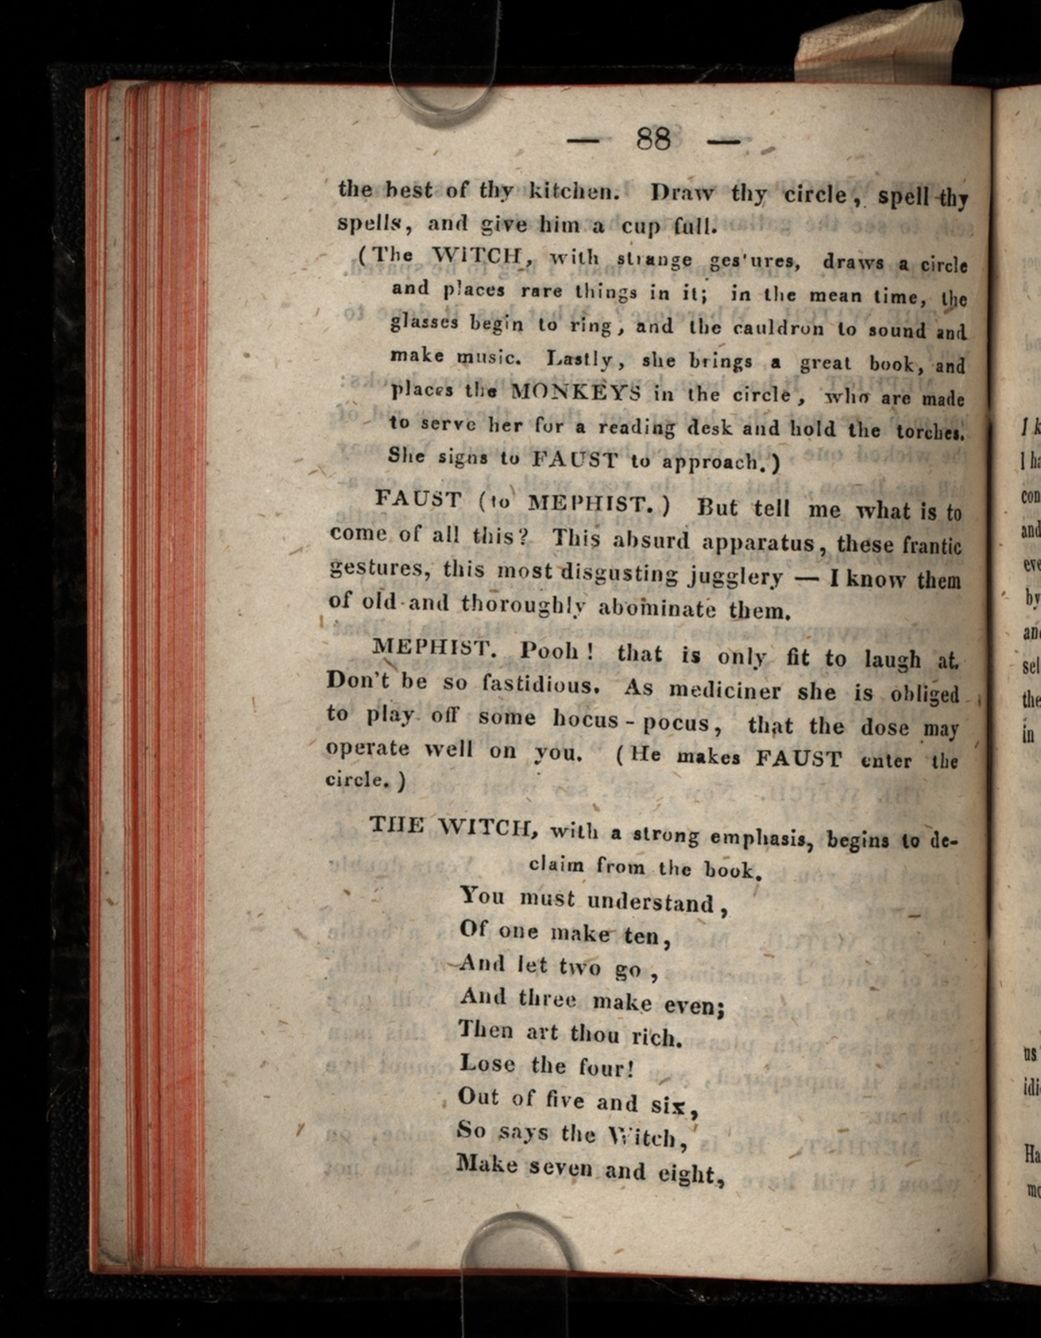 — 88 —
the best of thy kitchen. Draw thy circle, spell thy
spells, and give him a cup full.
(The WITCH, with strange ges'ures, draws a circle
and places rare things in it; in the mean time, the
glasses begin to ring, and the cauldron to sound and
make music. Lastly, she brings a great book, and
places the MONKEYS in the circle, who are made
to serve her for a reading desk and hold the torches.
She signs to FAUST to approach.)
FAUST (to MEPHIST.) But tell me what is to
come of all this? This absurd apparatus, these frantic
gestures, this most disgusting jugglery — I know them
of old and thoroughly abominate them.
MEPHIST. Pooh! that is only fit to laugh at.
Don't be so fastidious. As mediciner she is obliged
to play off some hocus-pocus, that the dose may
operate well on you. (He makes FAUST enter the
circle.)
THE WITCH, with a strong emphasis, begins to de-
claim from the book.
You must understand,
Of one make ten,
And let two go,
And three make even;
Then art thou rich.
Lose the four!
Out of five and six,
So says the Witch,
Make seven and eight,